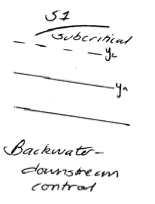 S1
Subcritical
yc
yn
Backwater-
downstream
control